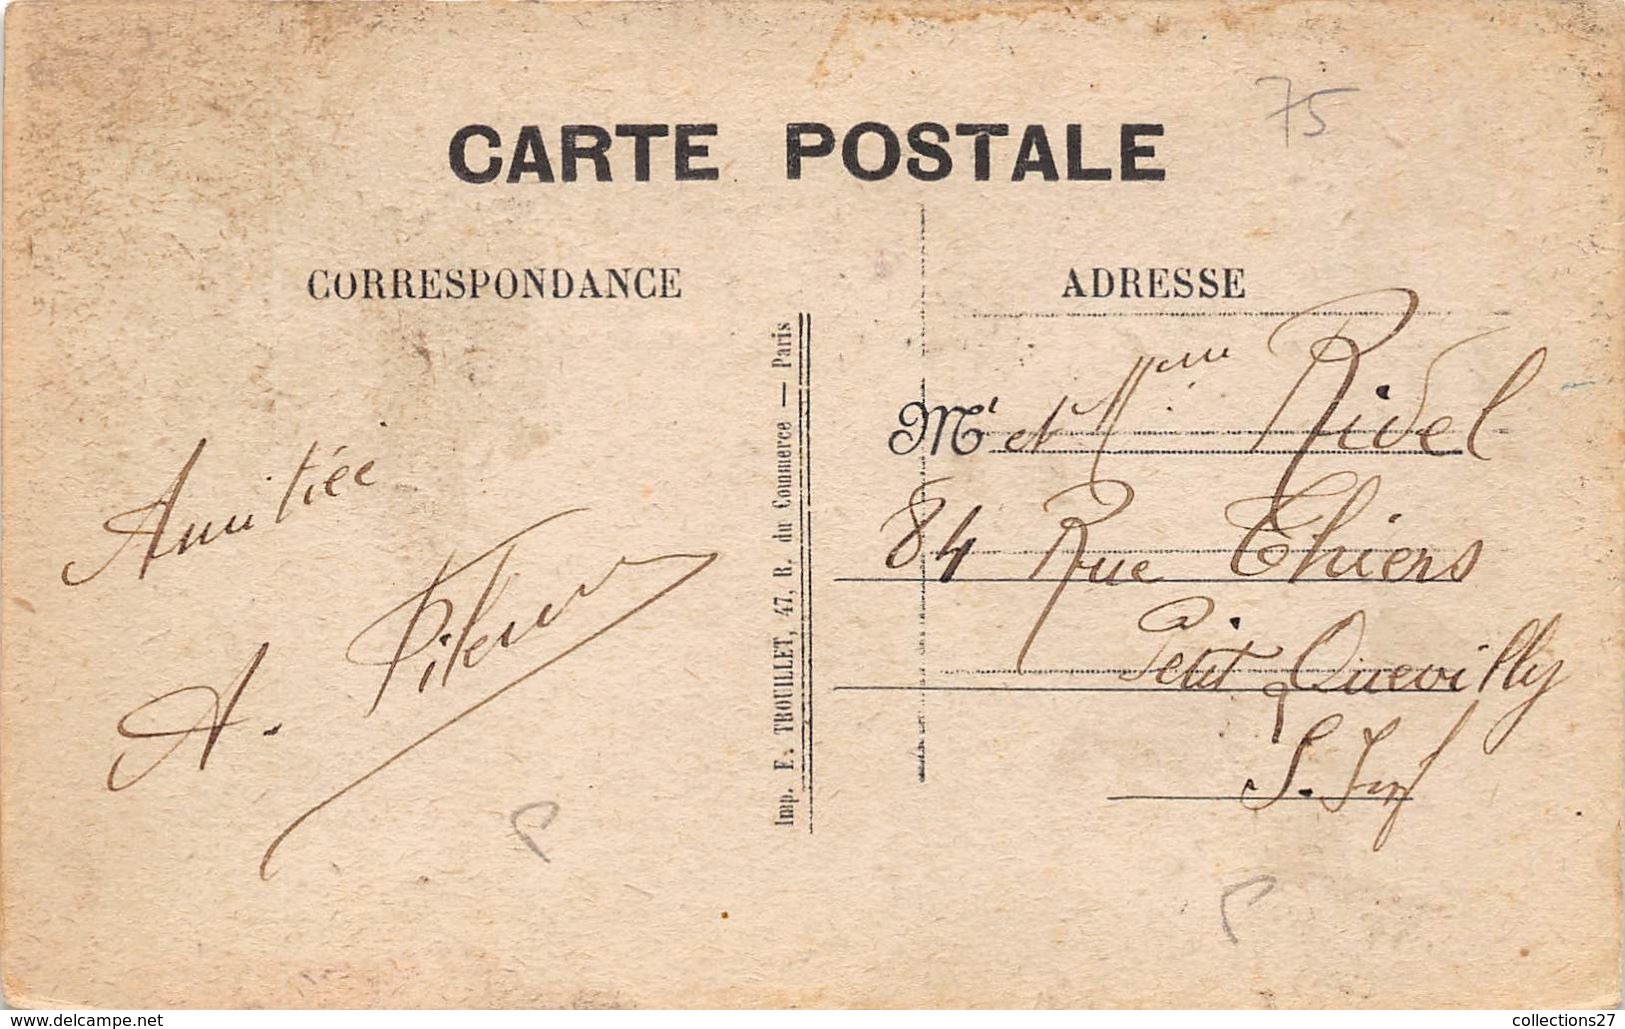 75
CARTE POSTALE
CORRESPONDANCE
ADRESSE
Amitiée
A.
Imp. E. TROUILLET, 47, R. du Commerce — Paris
Mr et Mme Ridel
84 Rue Thiers
Petit Quevilly
S. Inf
P
P
delcampe.net
collections27